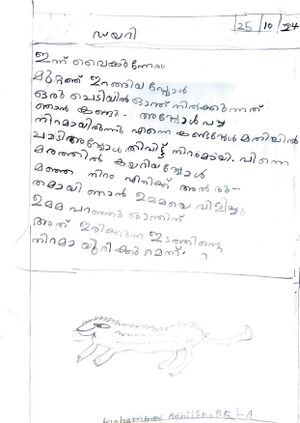 ഡയറി
25 10 24
ഇന്ന് വൈകുന്നേരം
മുറ്റത്ത് ഇറങ്ങിയപ്പോൾ
ഒരു ചെടിയിൽ ഓന്ത് നിൽക്കുന്നത്
ഞാൻ കണ്ടു. അപ്പോൾ പച്ച
നിറമായിരുന്നു എന്നെ കണ്ടപ്പോൾ മതിലിൽ
ചാടി അപ്പോൾ നിറമായി. പിന്നെ
മരത്തിൽ കയറിയപ്പോൾ
മഞ്ഞ നിറം എനിക്ക് അൽഭു-
തമായി ഞാൻ ഉമ്മയെ വിളിച്ചു
ഉമ്മ പറഞ്ഞു ഓന്തിന്
അത് ഇരിക്കുന്ന ഇടത്തിന്റെ
നിറമായിരിക്കുമെന്ന്.
Mohammed Adhil